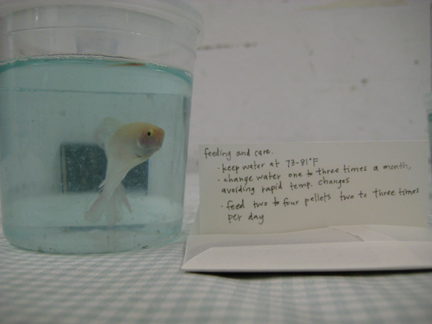 feeding and care.
· keep water at 73-81°F
· change water one to three times a month,
avoiding rapid temp. changes
· feed two to four pellets two to three times
per day